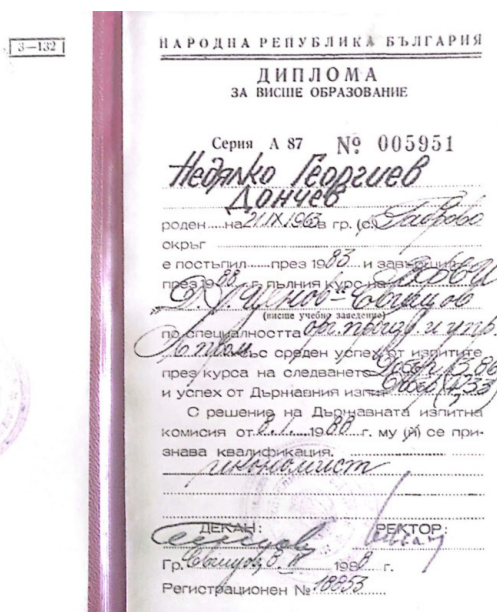 3—132
НАРОДНА РЕПУБЛИКА БЪЛГАРИЯ
ДИПЛОМА
ЗА ВИСШЕ ОБРАЗОВАНИЕ
Серия А 87 № 005951
Недялко Георгиев
Дончев
роден на 21.IX.1963 в гр. (с.) Габрово
окръг
е постъпил през 1983 и завършил
през 1988 г. пълния курс на
Свищов
(висше учебно заведение)
по специалността орг. произв. и упр.
със среден успех от изпитите
през курса на следването
и успех от Държавния изпит
С решение на Държавната изпитна
комисия от 1988 г. му (ѝ) се при-
знава квалификация.
икономист
ДЕКАН: РЕКТОР:
Гр. Свищов, 198 г.
Регистрационен № 18853